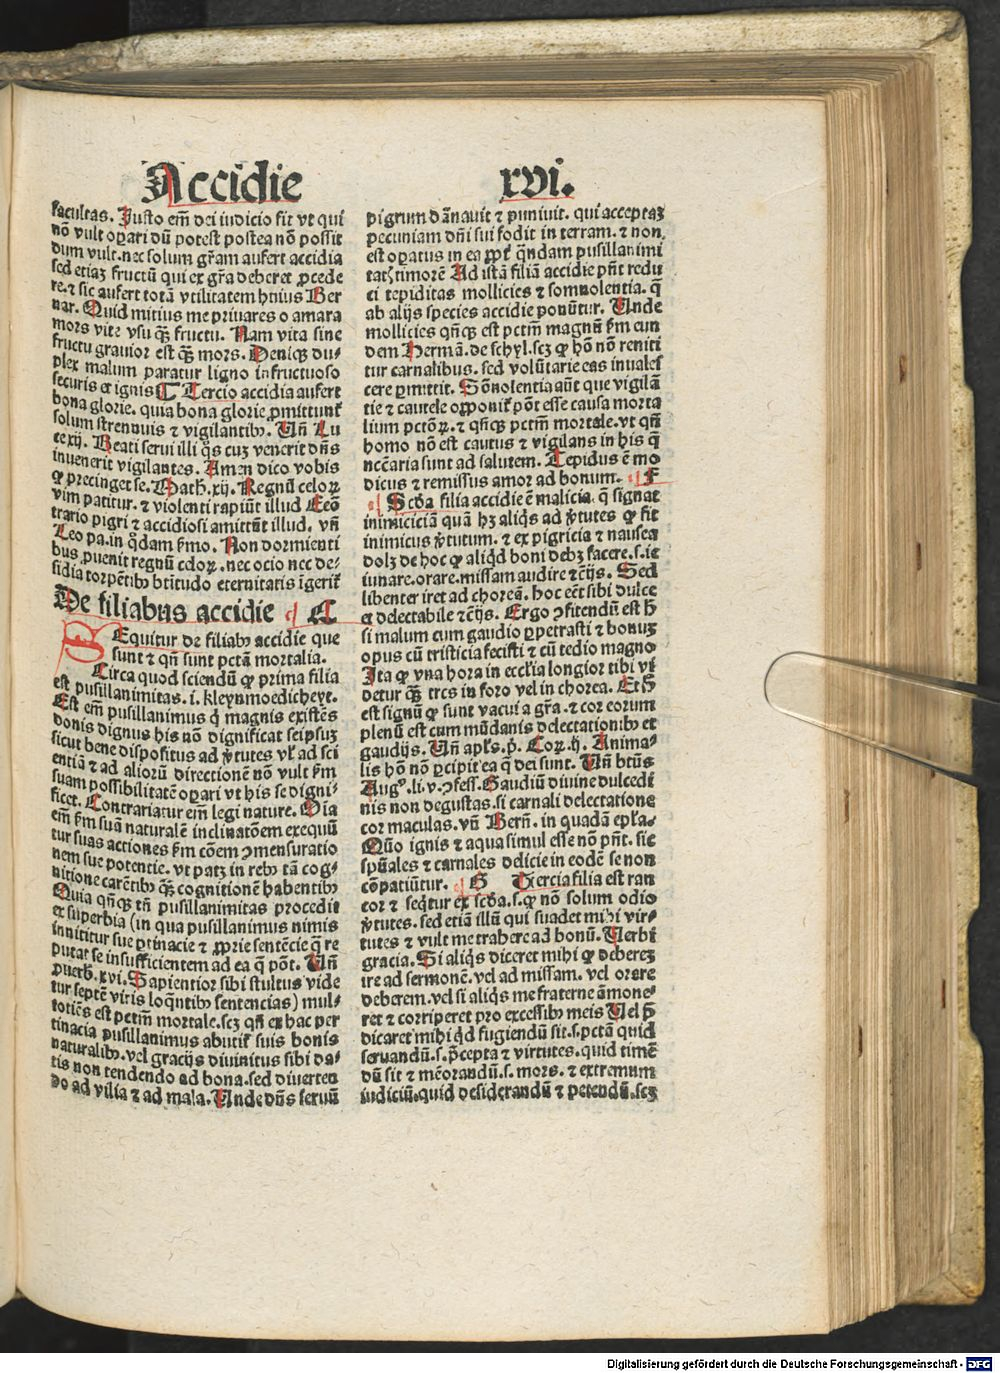 Accidie
xvi.
facultas. Justo em̄ dei iudicio fit vt qui
nō vult oꝑari dū potest postea nō possit
dum vult. nec solum gr̄am aufert accidia
sed etiaꝫ fructū qui ex gr̄a deberet ꝓcede
re. ⁊ sic aufert totā vtilitatem huius Ber
nar. Quid mitius me priuares o amara
mors vite vsu qꝫ̄ fructu. Nam vita sine
fructu grauior est qꝫ̄ mors. Deniqꝫ du⸗
plex malum paratur ligno infructuoso
securis et ignis ¶ Tercio accidia aufert
bona glorie. quia bona glorie ꝓmittunt̄
solum strennuis ⁊ vigilantibꝰ. Vn̄ Lu
ce xij. Beati serui illi q̊s cuꝫ venerit dn̄s
inuenerit vigilantes. Amen dico vobis
ꝙ precinget se. Math̄. xij. Regnū celoꝝ
vim patitur. ⁊ violenti rapiūt illud Ecō
trario pigri ⁊ accidiosi amittūt illud. vn̄
Leo pa. in q̇dam ẜmo. Non dormienti
bus ꝓuenit regnū celoꝝ. nec ocio nec de⸗
sidia torpētibꝰ btītudo eternitatis īgerit̄
De filiabus accidie ¶ C
SEquitur de filiabꝰ accidie que
sunt ⁊ qn̄ sunt pctā mortalia.
Circa quod sciendū ꝙ prima filia
est pusillanimitas. i. kleynmoedicheyt.
Est em̄ pusillanimus q̇ magnis existēs
donis dignus his nō dignificat seipsuꝫ
sicut bene dispositus ad v̇tutes vl̄ ad sci
entiā ⁊ ad alioru̅ directionē nō vult ẜm
suam possibilitatē oꝑari vt his se digni⸗
ficet. Contrariatur em̄ legi nature. Oīa
em̄ ẜm suā naturalē inclinatōem exequū
tur suas actiones ẜm cōem ꝯmensuratio
nem sue potentie. vt patꝫ in rebꝰ tā cog⸗
nitione carētibꝰ qꝫ̄ cognitionē habentibꝰ
Quia qn̄qꝫ tn̄ pusillanimitas procedit
ex superbia (in qua pusillanimus nimis
innititur sue ꝑtinacie ⁊ ꝓprie sentēcie q̄ re
putat se insufficientem ad ea q̄ pōt. Vn̄
ꝓuerb. xvi. Sapientior sibi stultus vide
tur septē viris loq̄ntibꝰ sentencias) mul⸗
tociēs est pctm̄ mortale. scꝫ qn̄ ex hac per
tinacia pusillanimus abutit̄ suis bonis
naturalibꝰ. vel gracijs diuinitus sibi da⸗
tis non tendendo ad bona. sed diuerten
do ad vilia ⁊ ad mala. Vnde dn̄s seruū
pigrum dānauit ⁊ puniuit. qui acceptaꝫ
pecuniam dn̄i sui fodit in terram. ⁊ non
est oꝑatus in ea ꝓpt̄ q̄ndam pusillanimi
tatꝭ timorē Ad istā filiā accidie pn̄t redu
ci tepiditas mollicies ⁊ somnolentia. q̄
ab alijs species accidie ponūtur. Vnde
mollicies qn̄qꝫ est pctm̄ magnū ẜm eun
dem Hermā. de schyl. scꝫ ꝙ hō nō reniti
tur carnalibus. sed volūtarie eas inuales
cere ꝑmittit. Sōnolentia aūt que vigilā
tie ⁊ cautele opponit̄ pōt esse causa morta
lium pctōꝝ. ⁊ qn̄qꝫ pctm̄ mortale. vt qn̄
homo nō est cautus ⁊ vigilans in his q̄
nc̄caria sunt ad salutem. Tepidus ē mo
dicus ⁊ remissus amor ad bonum. ¶ F
¶ Scḋa filia accidie ē malicia. q̄ signat
inimiciciā quā hꝫ aliq̇s ad v̇tutes ꝙ fit
inimicus v̇tutum. ⁊ ex pigricia ⁊ nausea
dolꝫ de hoc ꝙ aliqd̄ boni debꝫ facere. s. ie
iunare. orare. missam audire ⁊c̄ijs. Sed
libenter iret ad choreā. hoc eēt sibi dulce
et delectabile ⁊c̄ijs. Ergo ꝯfitendū est h̄
si malum cum gaudio ꝑpetrasti ⁊ bonuꝫ
opus cū tristicia fecisti ⁊ cū tedio magno
Ita ꝙ vna hora in eccl̄ia longior tibi vi
detur qꝫ̄ tres in foro vel in chorea. Et h̄
est signū ꝙ sunt vacui a gr̄a. ⁊ cor eorum
plenū est cum mūdanis delectationibꝰ et
gaudijs. Vn̄ apl̄s. p̄. Coꝝ. ij. Anima⸗
lis hō nō ꝑcipit ea q̄ dei sunt. Vn̄ btūs
Augꝰ. li. v. ꝯfess. Gaudiū diuine dulcedi
nis non degustas. si carnali delectatione
cor maculas. vn̄ Bern̄. in quadā epl̄a⸗
Quō ignis ⁊ aqua simul esse nō pn̄t. sic
spūales ⁊ carnales delicie in eodē se non
cōpatiūtur. ¶ G Tercia filia est ran
cor ⁊ seq̄tur ex scḋa. s. ꝙ nō solum odio
v̇tutes. sed etiā illū qui suadet mihi vir⸗
tutes ⁊ vult me trahere ad bonū. Verbi
gracia. Si aliq̇s diceret mihi ꝙ debereꝫ
ire ad sermonē. vel ad missam. vel orare
deberem. vel si aliq̇s me fraterne āmone⸗
ret ⁊ corriperet pro excessibꝰ meis Vel p̄
dicaret mihi qd̄ fugiendū sit. s. pctā quid
seruandū. s. p̄cepta ⁊ virtutes. quid timē
dū sit ⁊ mēorandū. s. mors. ⁊ extremum
iudiciū. quid desiderandū ⁊ petendū. scꝫ
Digitalisierung gefördert durch die Deutsche Forschungsgemeinschaft - DFG